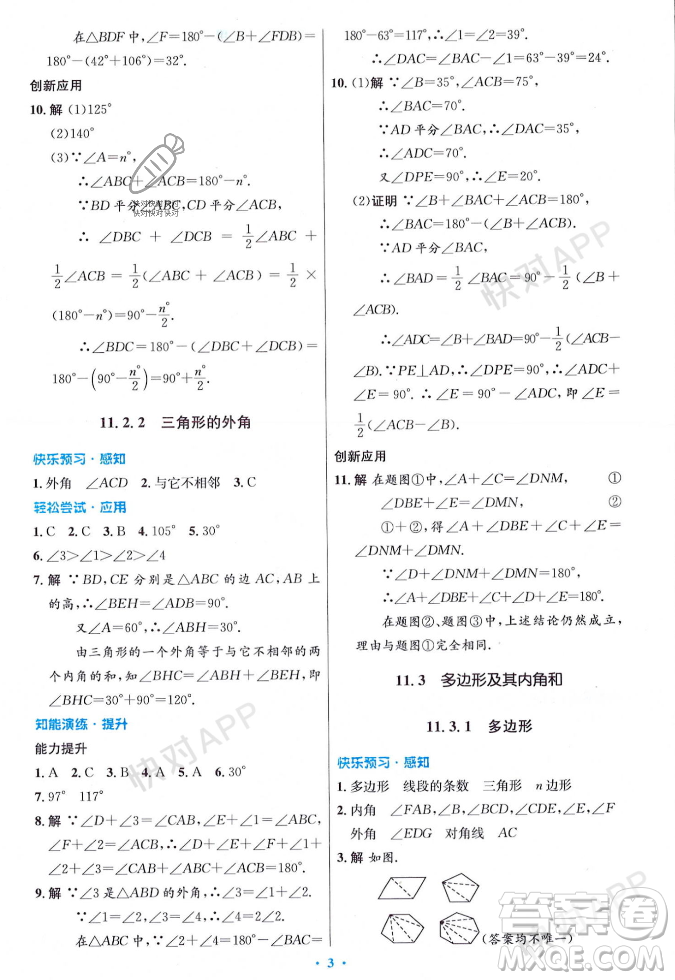 在△BDF中，∠F＝180°－(∠B＋∠FDB)＝
180°－(42°＋106°)＝32°.
创新应用
10. 解 (1)125°
(2)140°
(3)∵∠A＝n°，
∴∠ABC＋∠ACB＝180°－n°.
∵BD平分∠ABC，CD平分∠ACB，
∴∠DBC＋∠DCB＝1/2∠ABC＋
1/2∠ACB＝1/2(∠ABC＋∠ACB)＝1/2×
(180°－n°)＝90°－n°/2.
∴∠BDC＝180°－(∠DBC＋∠DCB)＝
180°－(90°－n°/2)＝90°＋n°/2.
11.2.2 三角形的外角
快乐预习·感知
1. 外角 ∠ACD 2. 与它不相邻 3. C
轻松尝试·应用
1. C 2. C 3. B 4. 105° 5. 30°
6. ∠3＞∠1＞∠2＞∠4
7. 解 ∵BD，CE分别是△ABC的边AC，AB上
的高，∴∠BEH＝∠ADB＝90°.
又∠A＝60°，∴∠ABH＝30°.
由三角形的一个外角等于与它不相邻的两个
内角的和，知∠BHC＝∠ABH＋∠BEH，即
∠BHC＝30°＋90°＝120°.
知能演练·提升
能力提升
1. A 2. C 3. B 4. A 5. A 6. 30°
7. 97° 117°
8. 解 ∵∠D＋∠3＝∠CAB，∠E＋∠1＝∠ABC，
∠2＋∠F＝∠ACB，∴∠D＋∠E＋∠F＋∠1
＋∠2＋∠3＝∠CAB＋∠ABC＋∠ACB＝180°.
9. 解 ∵∠3是△ABD的外角，∴∠3＝∠1＋∠2.
∵∠1＝∠2，∴∠3＝2∠2.∵∠4＝∠3，
∴∠4＝2∠2.∴∠2＋∠4＝3∠2＝180°－∠BAC＝
180°－63°＝117°，∴∠2＝∠1＝39°.
∴∠DAC＝∠BAC－∠1＝63°－39°＝24°.
10. (1)解 ∵∠B＝35°，∠ACB＝75°，
∴∠BAC＝70°.
∵AD平分∠BAC，∴∠DAC＝35°，
∴∠ADC＝70°.
又∠DPE＝90°，∴∠E＝20°.
(2)证明 ∵∠B＋∠BAC＋∠ACB＝180°，
∴∠BAC＝180°－(∠B＋∠ACB).
∵AD平分∠BAC，
∴∠BAD＝1/2∠BAC＝90°－1/2(∠B＋
∠ACB).
∴∠ADC＝∠B＋∠BAD＝90°－1/2(∠ACB－
∠B).∵PE⊥AD，∴∠DPE＝90°.
∴∠ADC＋∠E＝90°.∴∠E＝90°－∠ADC，即∠E＝
1/2(∠ACB－∠B).
创新应用
11. 解 在题图①中，∠A＋∠C＝∠DNM， ①
∠DBE＋∠E＝∠DMN， ②
①＋②，得∠A＋∠DBE＋∠C＋∠E＝
∠DNM＋∠DMN.
∵∠D＋∠DNM＋∠DMN＝180°，
∴∠A＋∠DBE＋∠C＋∠D＋∠E＝180°.
在题图②、题图③中，上述结论仍然成立，
理由与题图①完全相同.
11.3 多边形及其内角和
11.3.1 多边形
快乐预习·感知
1. 多边形 线段的条数 三角形 n边形
2. 内角 ∠FAB，∠B，∠BCD，∠CDE，∠E，∠F
外角 ∠EDG 对角线 AC
3. 解 如图.
(答案均不唯一)
· 3 ·
快对APP
快对APP
快对APP
快对快对快对
快对快对快对
答案圈